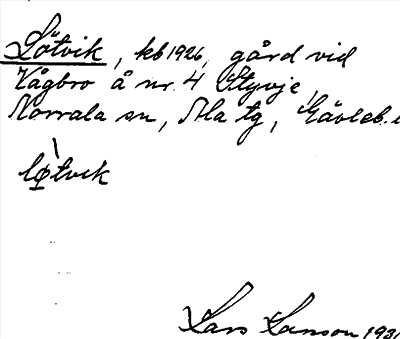 Lötvik, kb 1926, gård vid
Vågbro å nr. 4 Styvje,
Norrala sn, Ala tg, Gävleb. l
lø̀tvik
Lars Larson 1931